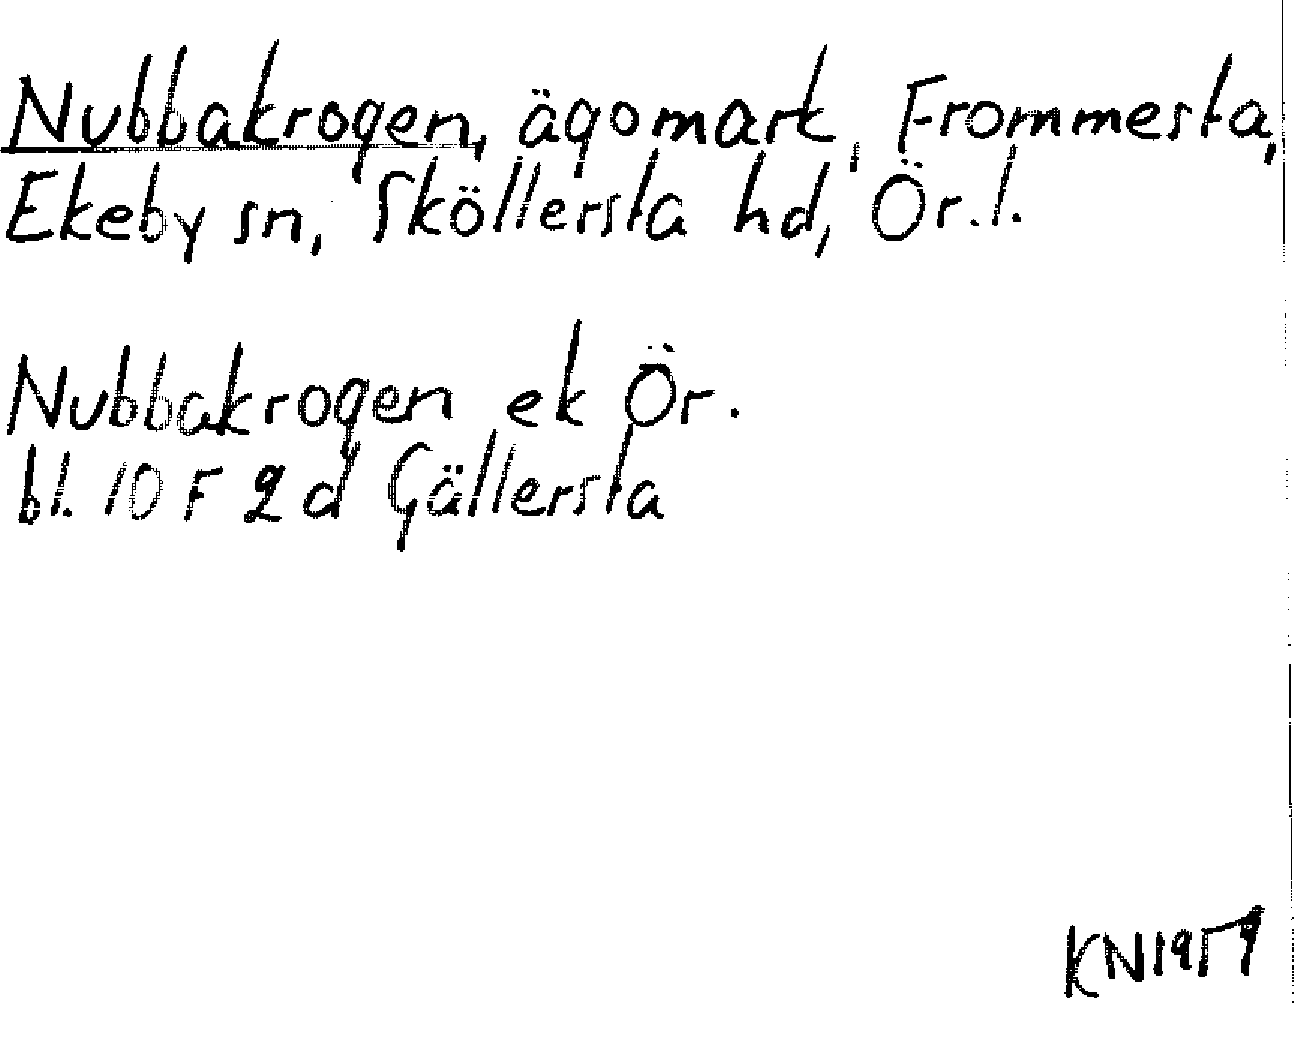 Nubbakrogen, ägomark, Frommesta,
Ekeby sn, Sköllersta hd, Ör.l.
Nubbakrogen ek Ör.
bl. 10 F 2 d Gällersta
KN 1959